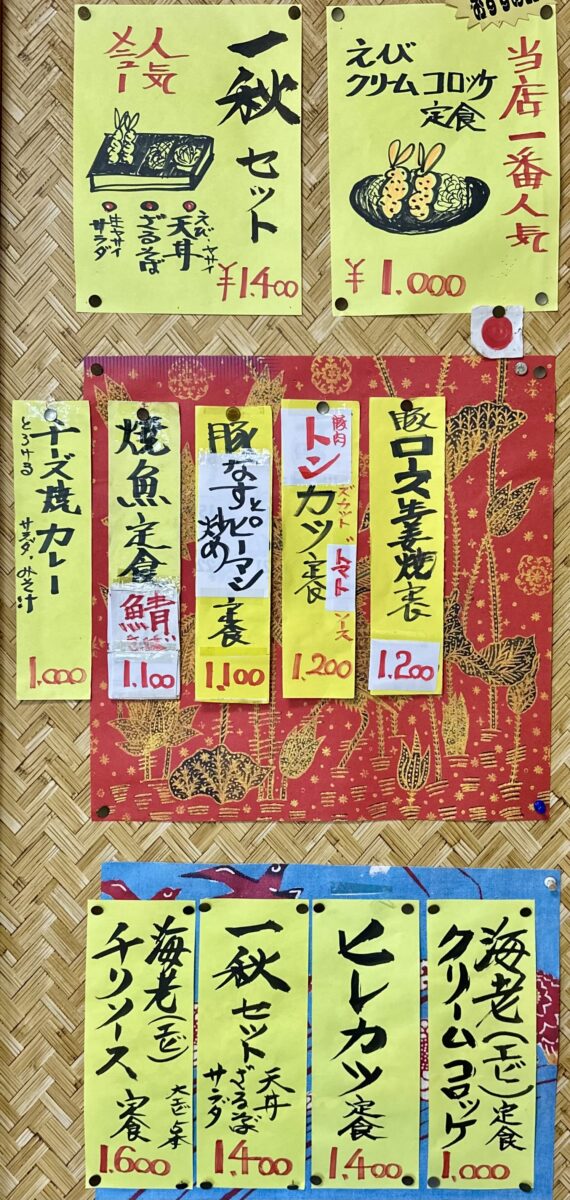 おすすめ
当店一番人気
えび
クリームコロッケ
定食
¥1.000
人気
メニュー
一秋セット
えび・ヤサイ
天丼
ざるそば
生ヤサイ
サラダ
¥1.400
豚ロース生姜焼定食
1.200
豚肉
トンカツ定食
トマトソース
1.200
豚なすとピーマン
炒め
定食
1.100
焼魚定食
鯖
1.100
とろける
チーズ焼カレー
サラダ・みそ汁
1.000
海老(エビ)
クリームコロッケ
定食
1.000
ヒレカツ定食
1.400
一秋セット
天丼
ざるそば
サラダ
1.400
海老(エビ)
チリソース
定食
1.600